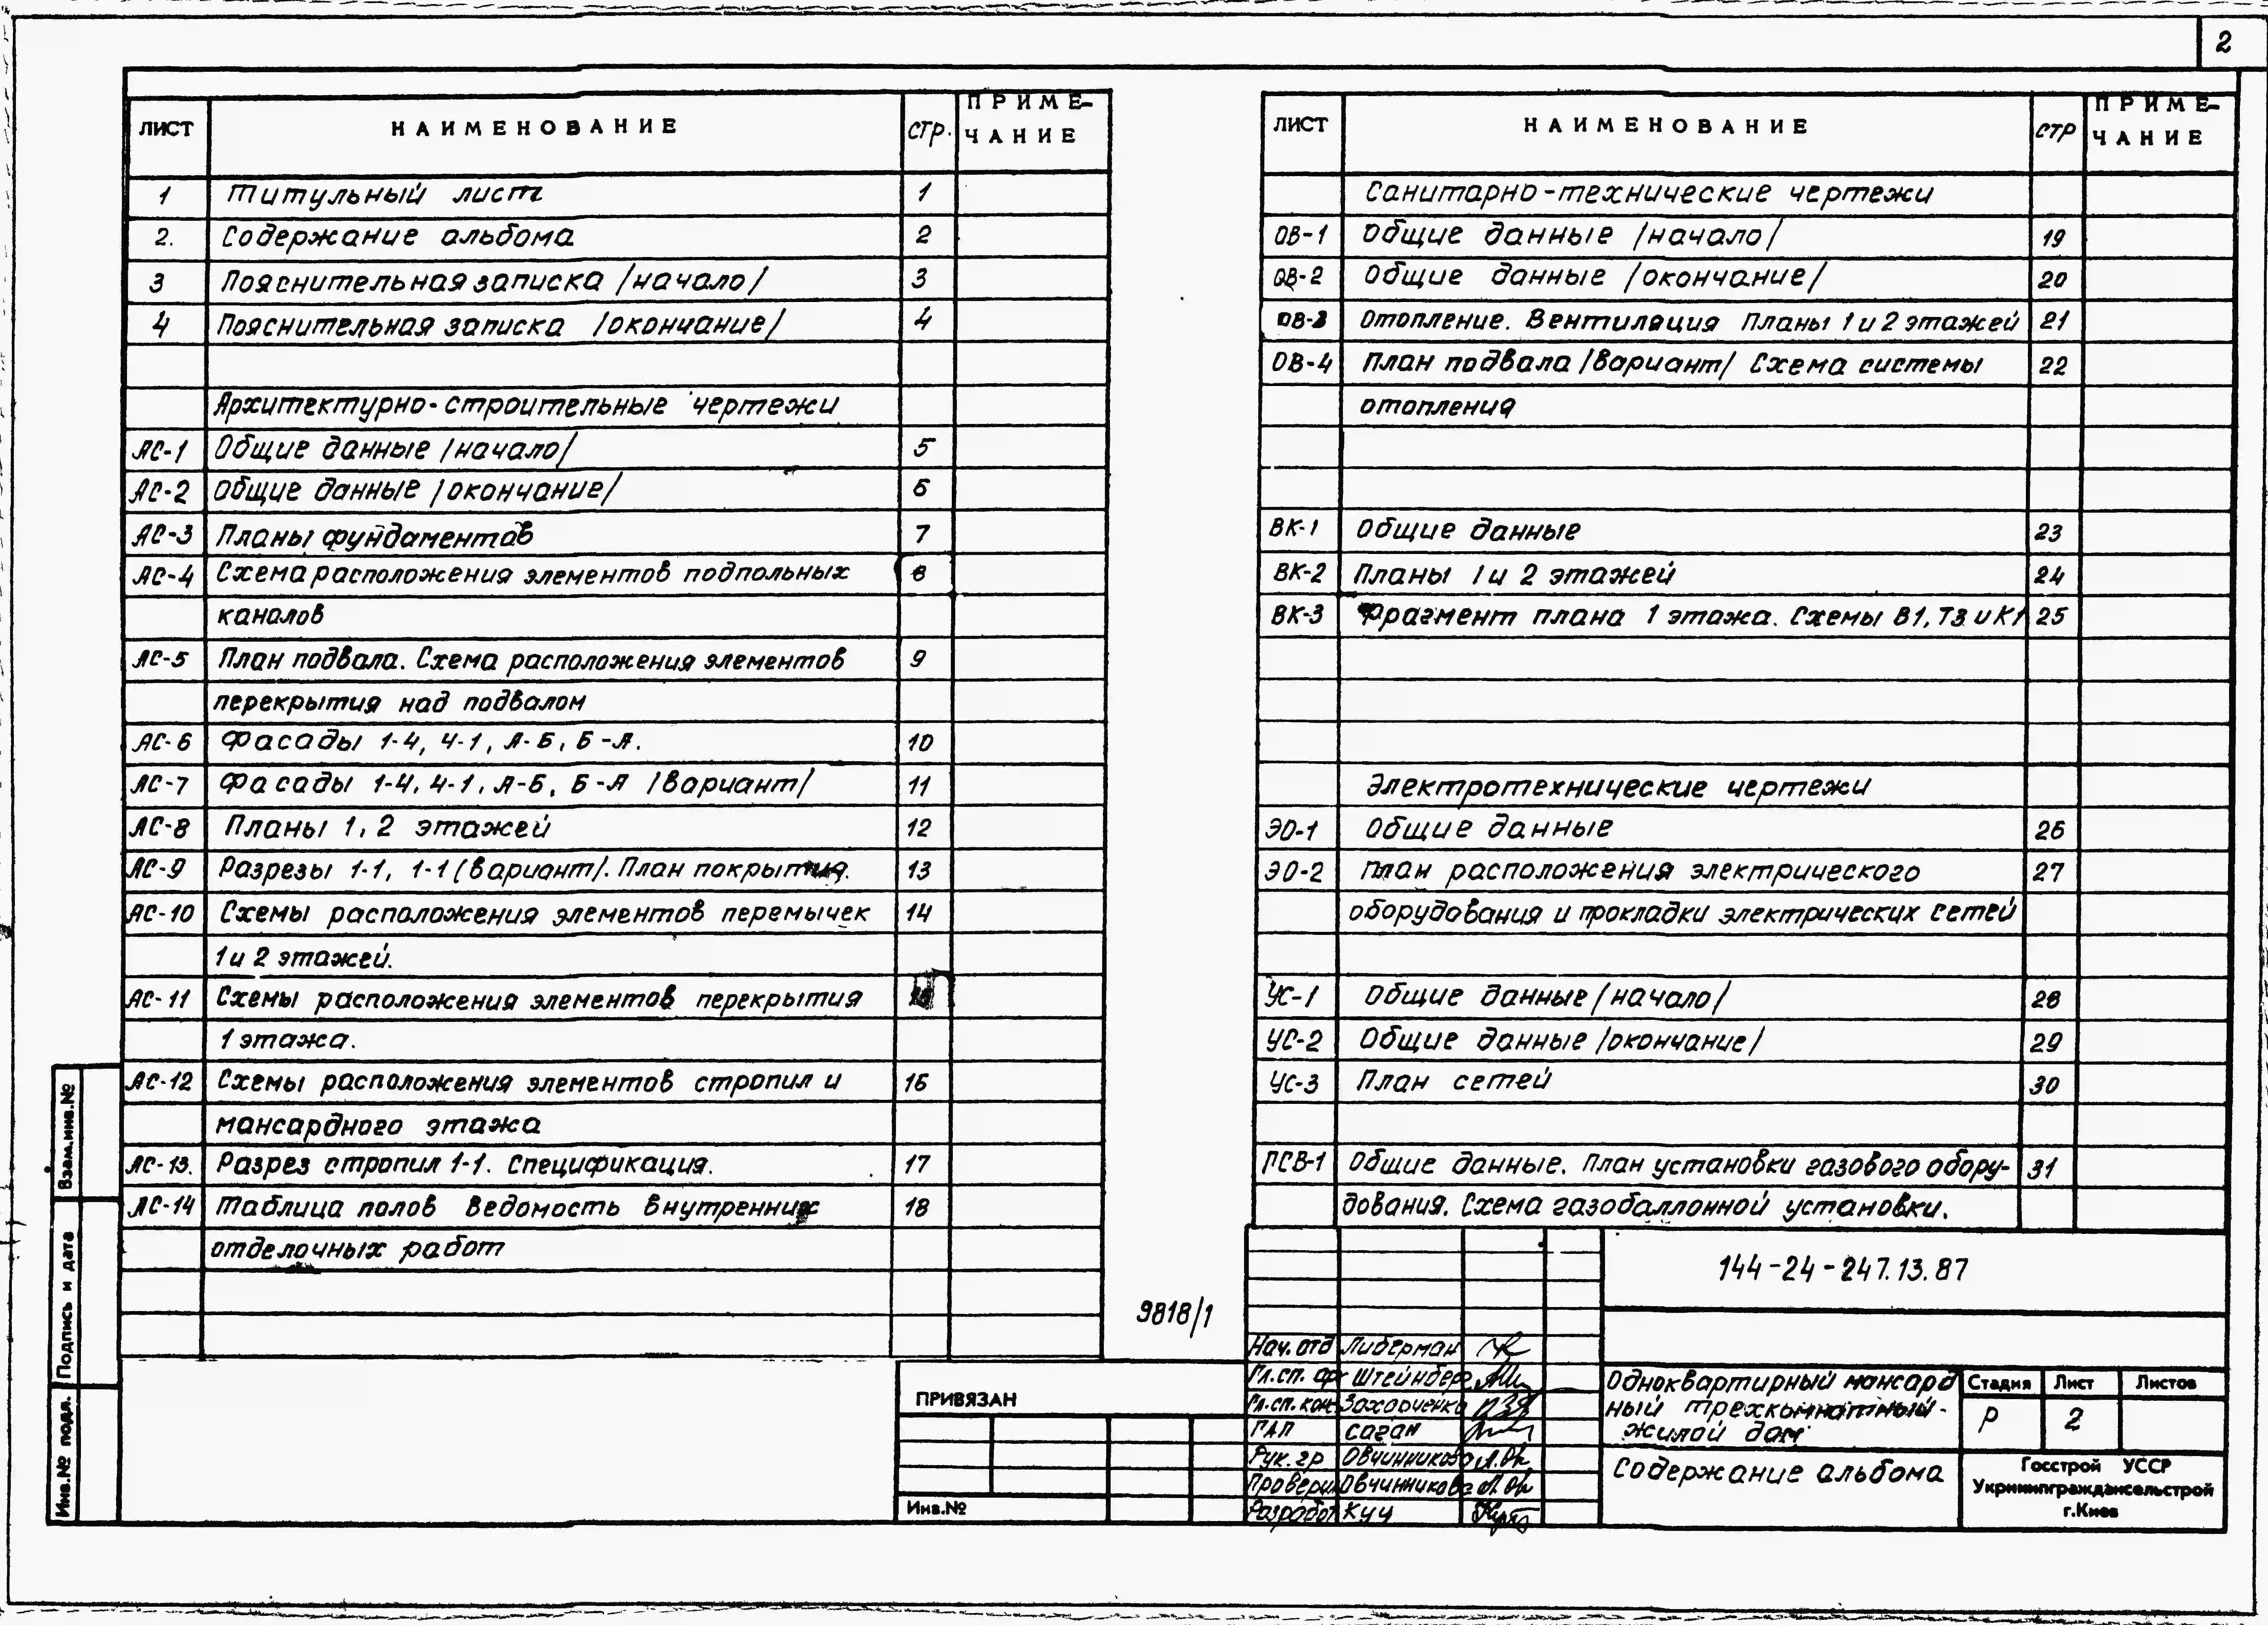 2
ЛИСТ НАИМЕНОВАНИЕ СТР. ПРИМЕ-
ЧАНИЕ
1 Титульный лист 1
2. Содержание альбома 2
3 Пояснительная записка /начало/ 3
4 Пояснительная записка /окончание/ 4
Архитектурно-строительные чертежи
АС-1 Общие данные /начало/ 5
АС-2 Общие данные /окончание/ 6
АС-3 Планы фундаментов 7
АС-4 Схема расположения элементов подпольных 8
каналов
АС-5 План подвала. Схема расположения элементов 9
перекрытия над подвалом
АС-6 Фасады 1-4, 4-1, А-Б, Б-А. 10
АС-7 Фасады 1-4, 4-1, А-Б, Б-А /вариант/ 11
АС-8 Планы 1, 2 этажей 12
АС-9 Разрезы 1-1, 1-1 (вариант/. План покрытия. 13
АС-10 Схемы расположения элементов перемычек 14
1 и 2 этажей.
АС-11 Схемы расположения элементов перекрытия
1 этажа.
АС-12 Схемы расположения элементов стропил и 16
мансардного этажа
АС-13. Разрез стропил 1-1. Спецификация. 17
АС-14 Таблица полов Ведомость внутренних 18
отделочных работ
ЛИСТ НАИМЕНОВАНИЕ СТР ПРИМЕ-
ЧАНИЕ
Санитарно-технические чертежи
ОВ-1 Общие данные /начало/ 19
ОВ-2 Общие данные /окончание/ 20
ОВ-3 Отопление. Вентиляция Планы 1 и 2 этажей 21
ОВ-4 План подвала /вариант/ Схема системы 22
отопления
ВК-1 Общие данные 23
ВК-2 Планы 1 и 2 этажей 24
ВК-3 Фрагмент плана 1 этажа. Схемы В1, Т3 и К1 25
Электротехнические чертежи
ЭО-1 Общие данные 26
ЭО-2 План расположения электрического 27
оборудования и прокладки электрических сетей
УС-1 Общие данные /начало/ 28
УС-2 Общие данные /окончание/ 29
УС-3 План сетей 30
ГСВ-1 Общие данные. План установки газового обору- 31
дования. Схема газобаллонной установки.
9818/1
144-24-247.13.87
Нач. отд Либерман
Гл.сп. ар Штейнберг
Гл.сп. кон. Захарченко
ГАП Саган
Рук. гр Овчинникова
Провери Овчинникова
Разработ Куц
Одноквартирный мансард
ный трехкомнатный-
жилой дом
Стадия Лист Листов
Р 2
Содержание альбома
Госстрой УССР
Укрниипграждансельстрой
г.Киев
ПРИВЯЗАН
Инв.№
Взам.инв.№
Подпись и дата
Инв.№ подл.